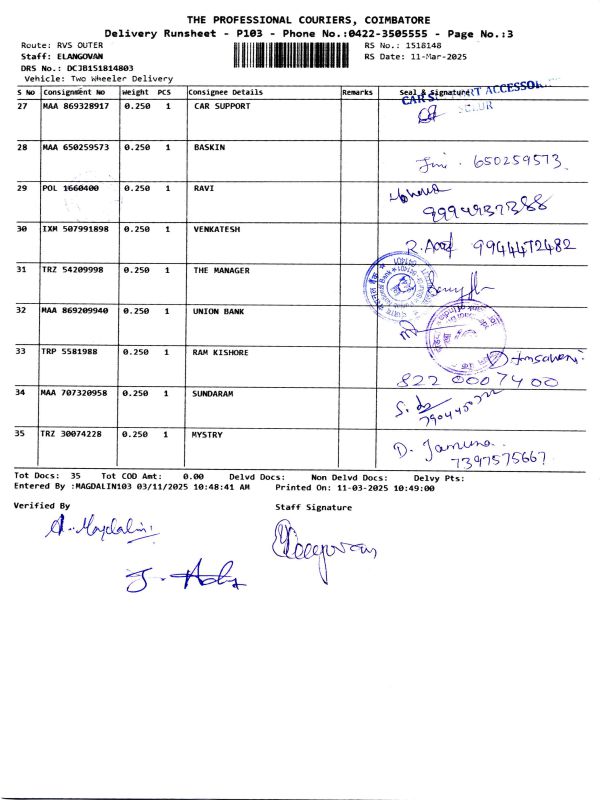 THE PROFESSIONAL COURIERS, COIMBATORE
Delivery Runsheet - P103 - Phone No.:0422-3505555 - Page No.:3
Route: RVS OUTER RS No.: 1518148
Staff: ELANGOVAN RS Date: 11-Mar-2025
DRS No.: DCJB151814803
Vehicle: Two Wheeler Delivery
S No Consignment No Weight PCS Consignee Details Remarks Seal & Signature
CAR SUPPORT ACCESSO
27 MAA 869328917 0.250 1 CAR SUPPORT
SULUR
28 MAA 650259573 0.250 1 BASKIN
650259573
29 POL 1660400 0.250 1 RAVI
9994937388
30 IXM 507991898 0.250 1 VENKATESH
9944472482
31 TRZ 54209998 0.250 1 THE MANAGER
32 MAA 869209940 0.250 1 UNION BANK
33 TRP 5581988 0.250 1 RAM KISHORE
822 000 7400
34 MAA 707320958 0.250 1 SUNDARAM
35 TRZ 30074228 0.250 1 MYSTRY
D. Jamuna
7397575667
Tot Docs: 35 Tot COD Amt: 0.00 Delvd Docs: Non Delvd Docs: Delvy Pts:
Entered By :MAGDALIN103 03/11/2025 10:48:41 AM Printed On: 11-03-2025 10:49:00
Verified By Staff Signature
A. Magdalin
Elangovan